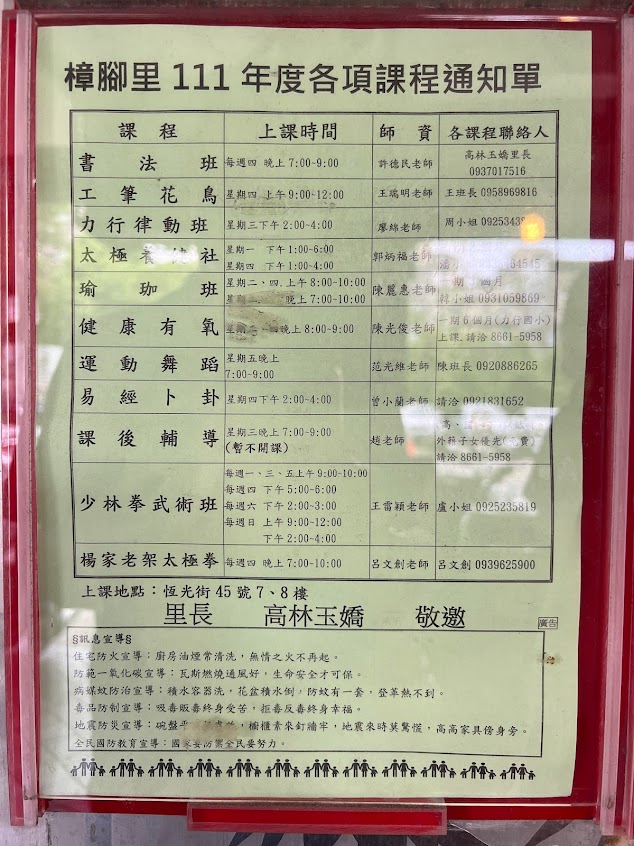 樟腳里 111 年度各項課程通知單
課程 上課時間 師資 各課程聯絡人
書法班 每週四 晚上 7:00~9:00 許德民老師 高林玉嬌里長
0937017516
工筆花鳥 星期四 上午 9:00~12:00 王瑞明老師 王班長 0958969816
力行律動班 星期三下午 2:00~4:00 廖綿老師 周小姐
太極 社 星期一 下午 1:00~6:00
星期四 下午 1:00~4:00 郭炳福老師 64545
瑜珈班 星期二、四.上午 8:00~10:00
晚上 7:00~10:00 陳麗惠老師 月
韓小姐 0931059869
健康有氧 晚上 8:00~9:00 陳光俊老師 一期 6 個月(力行國小)
上課.請洽 8661-5958
運動舞蹈 星期五晚上
7:00~9:00 范光維老師 陳班長 0920886265
易經卜卦 星期四下午 2:00~4:00 曾小蘭老師 請洽 0921831652
課後輔導 星期三晚上 7:00~9:00
(暫不開課) 趙老師
外籍子女優先
請洽 8661-5958
少林拳武術班 每週一、三、五上午 9:00~10:00
每週四 下午 5:00~6:00
每週六 下午 2:00~3:00
每週日 上午 9:00~12:00
下午 2:00~4:00 王雷穎老師 盧小姐 0925235819
楊家老架太極拳 每週四 晚上 7:00~10:00 呂文創老師 呂文創 0939625900
上課地點：恆光街 45 號 7、8 樓
里長 高林玉嬌 敬邀
廣告
§訊息宣導§
住宅防火宣導：廚房油煙常清洗，無情之火不再起。
防範一氧化碳宣導：瓦斯燃燒通風好，生命安全才可保。
病媒蚊防治宣導：積水容器洗，花盆積水倒，防蚊有一套，登革熱不到。
毒品防制宣導：吸毒販毒終身受苦，拒毒反毒終身幸福。
地震防災宣導：碗盤 櫥櫃素來釘牆牢，地震來時莫驚慌，高高家具傍身旁。
全民國防教育宣導：國家安防需全民要努力。